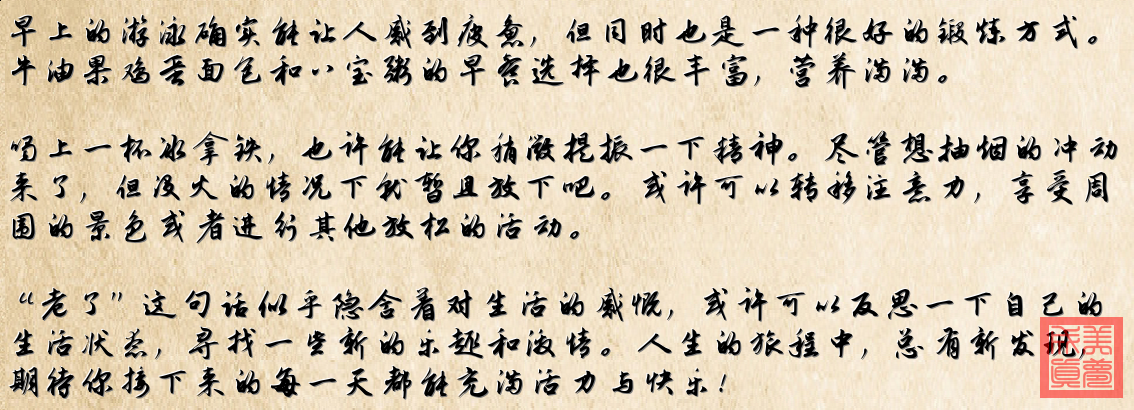 早上的游泳确实能让人感到疲惫，但同时也是一种很好的锻炼方式。
牛油果鸡蛋面包和八宝粥的早餐选择也很丰富，营养满满。
喝上一杯冰拿铁，也许能让你稍微提振一下精神。尽管想抽烟的冲动
来了，但没火的情况下就暂且放下吧。或许可以转移注意力，享受周
围的景色或者进行其他放松的活动。
“老了”这句话似乎隐含着对生活的感慨，或许可以反思一下自己的
生活状态，寻找一些新的乐趣和激情。人生的旅程中，总有新发现，
期待你接下来的每一天都能充满活力与快乐！
美梦
成真